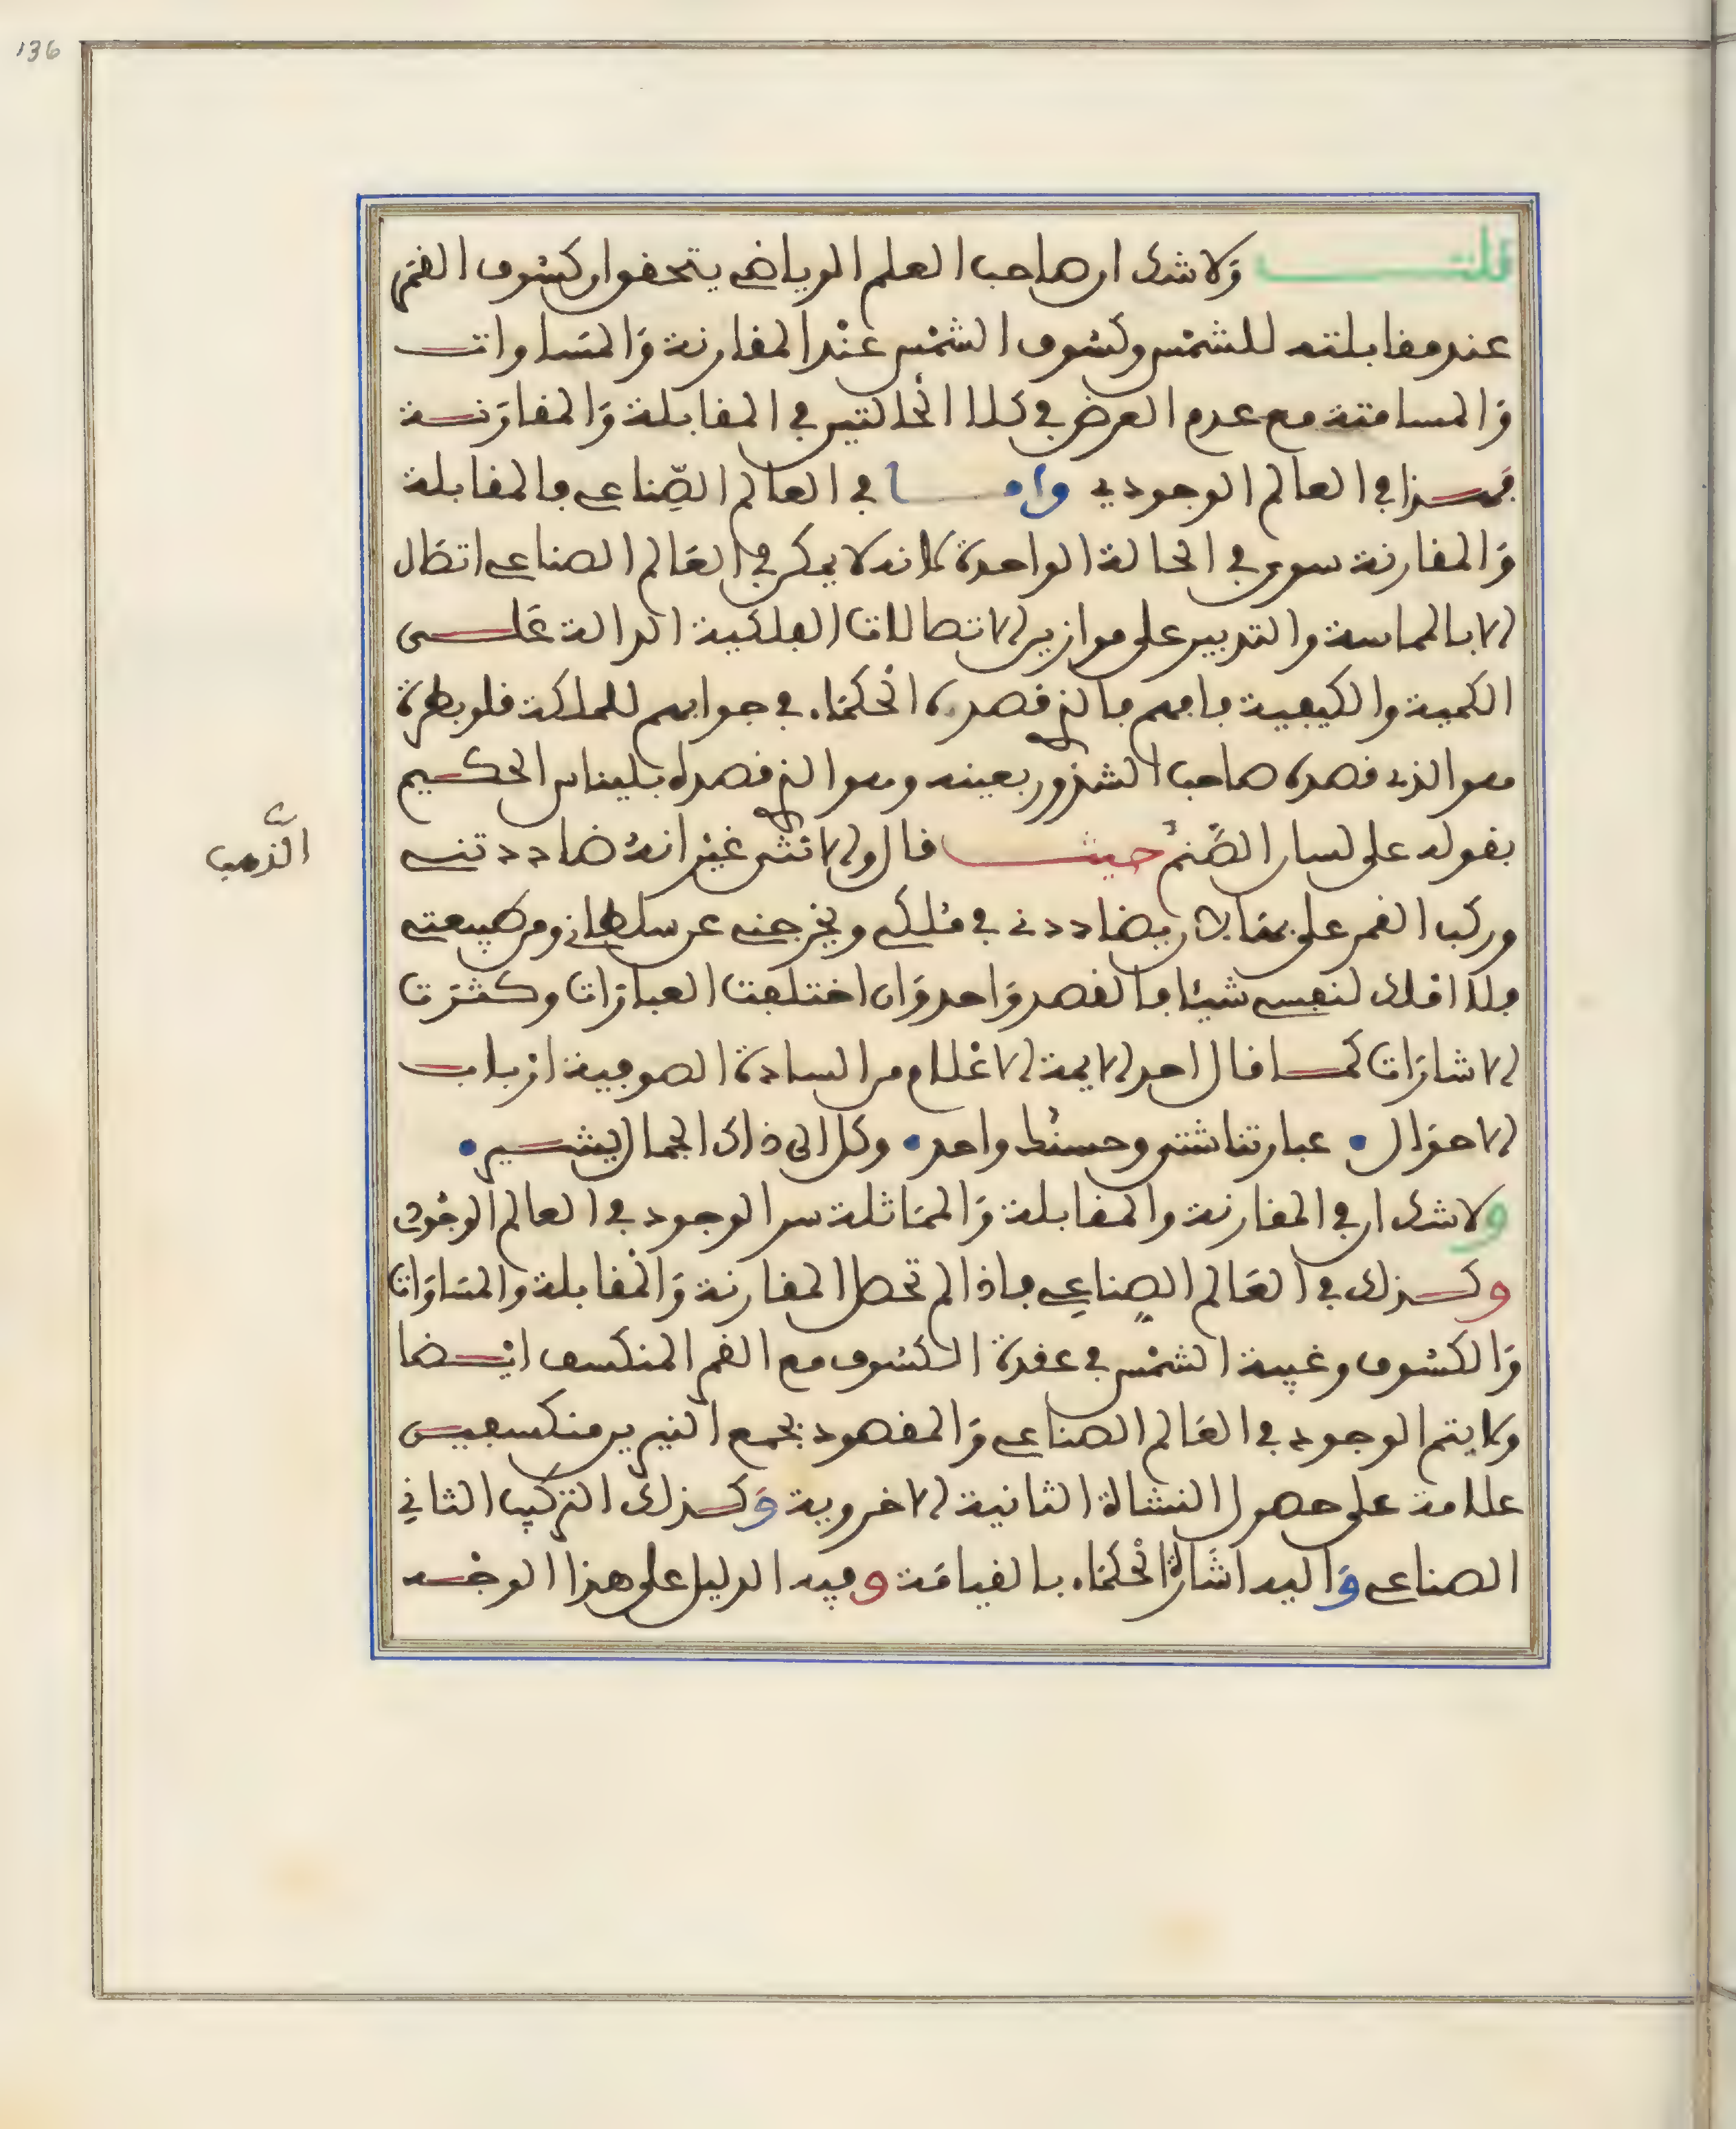 136
قلت ولا شك ان صاحب العلم الرياضي يتحقق ان كسوف القمر
عند مقابلته للشمس وكسوف الشمس عند المقارنة والمساوات
والمسامتة مع عدم العرض في كلا الحالتين في المقابلة والمقارنة
فهذا في العالم الوجودي واما في العالم الصناعي فالمقابلة
والمقارنة سوى في الحالة الواحدة لانه لا يمكن في العالم الصناعي اتصال
الا بالمماسة والتدبير على موازين الاتصالات الفلكية الدالة على
الكمية والكيفية فافهم فالذي قصده الحكماء في جوابهم للملكة قلوبطرة
هو الذي قصده صاحب الشذور بعينه وهو الذي قصده بليناس الحكيم
بقوله على لسان الصنم حيث قال ولانثى غير انه ضاددتني
الذهب
وركب القمر على يضاددني في ملكي ويخرجني عن سلطاني ومن طبيعتي
فلا املك لنفسي شيئا فالقصد واحد وان اختلفت العبارات وكثرت
الاشارات كما قال احد الايمة الاعلام من السادة الصوفية ارباب
الاحوال • عبارتنا شتى وحسنك واحد • وكل الى ذاك الجمال يشير •
ولا شك ان في المقارنة والمقابلة والمماثلة سر الوجود في العالم الوجودي
وكذلك في العالم الصناعي فاذا لم تحصل المقارنة والمقابلة والمساوات
والكسوف وغيبة الشمس في عقدة الكسوف مع القمر المنكسف ايضا
ولا يتم الوجود في العالم الصناعي والمقصود بجمع النيرين منكسفين
علامة على حصول النشاة الثانية الاخروية وكذلك التركيب الثاني
الصناعي واليه اشارة الحكماء بالقيامة وفيه الدليل على هذا الوجه